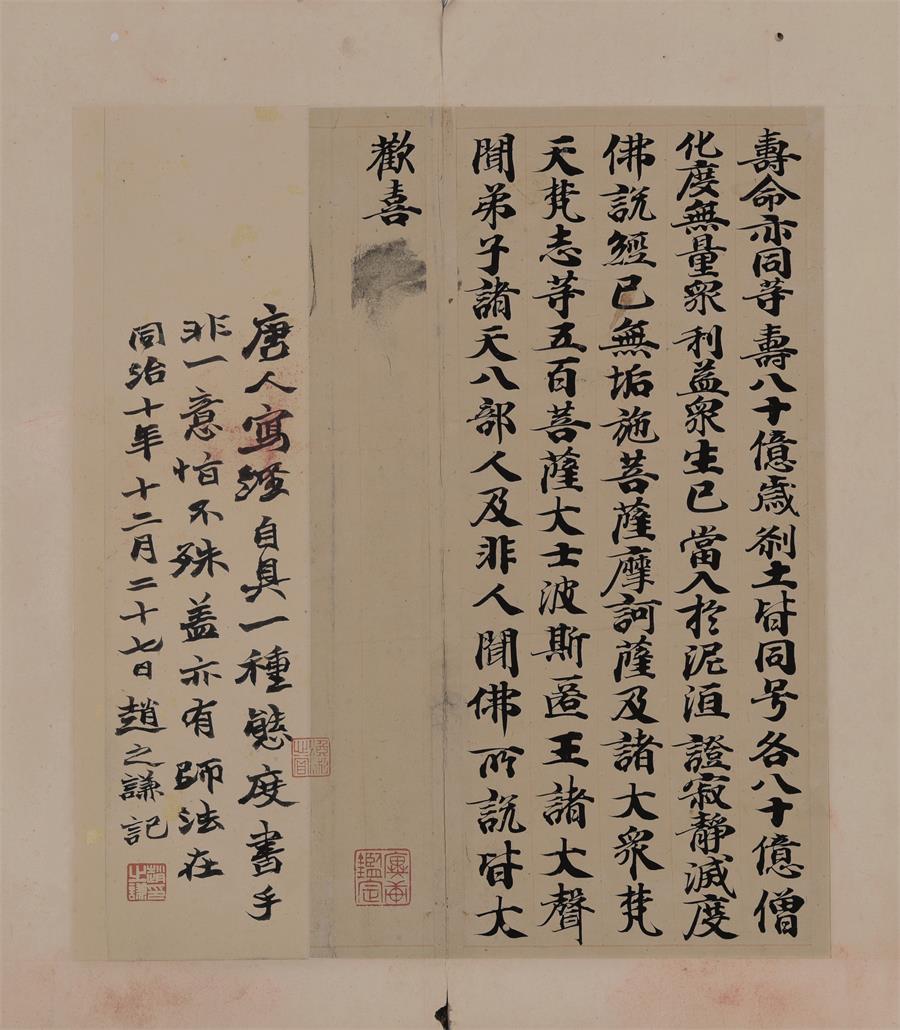 壽命亦同等壽八十億歲刹土皆同号各八十億僧
化度無量眾利益眾生已當入於泥洹證寂靜滅度
佛說經已無垢施菩薩摩訶薩及諸大眾梵
天梵志等五百菩薩大士波斯匿王諸大聲
聞弟子諸天八部人及非人聞佛所說皆大
歡喜
唐人寫經自具一種態度書手
非一意恉不殊盖亦有師法在
同治十年十二月二十七日趙之謙記